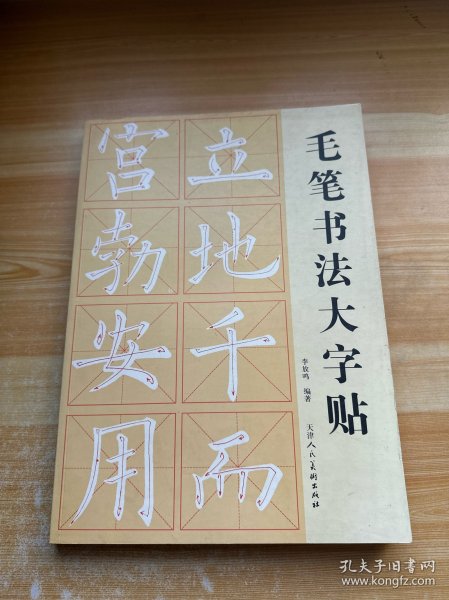 毛笔书法大字贴
李放鸣 编著
天津人民美術出版社
立地千而
宫勃安用
孔夫子旧书网
www.kongfz.com